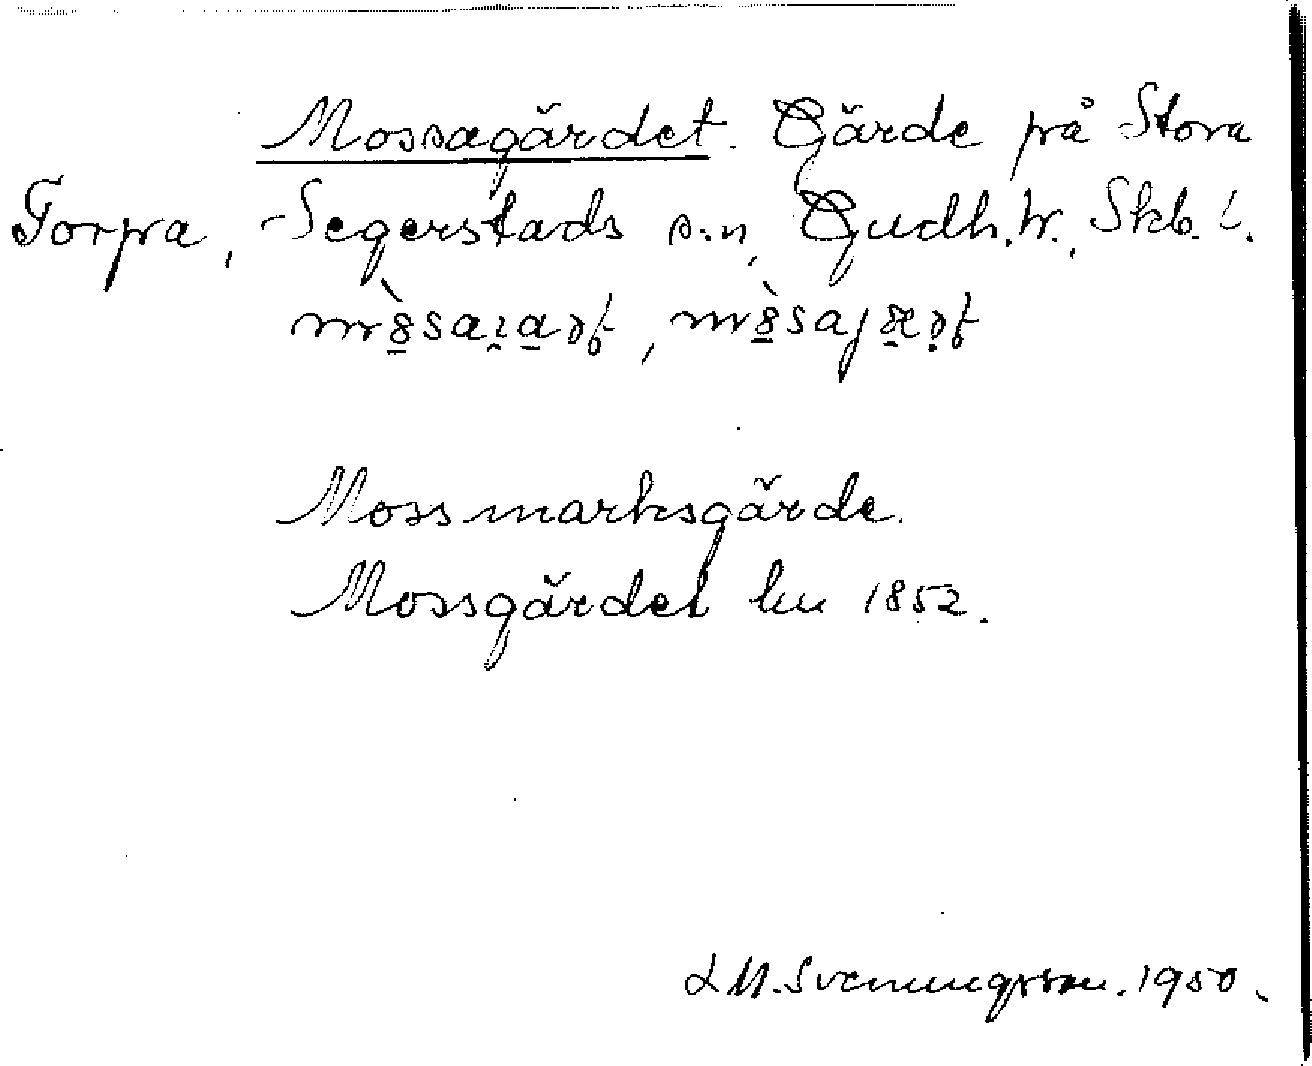 Mossagärdet. Gärde på Stora
Torpa, Segerstads s:n, Gudh. hr., Skb. l.
Mossmarksgärde.
Mossgärdet lm 1852.
L M. Svenungsson. 1950.